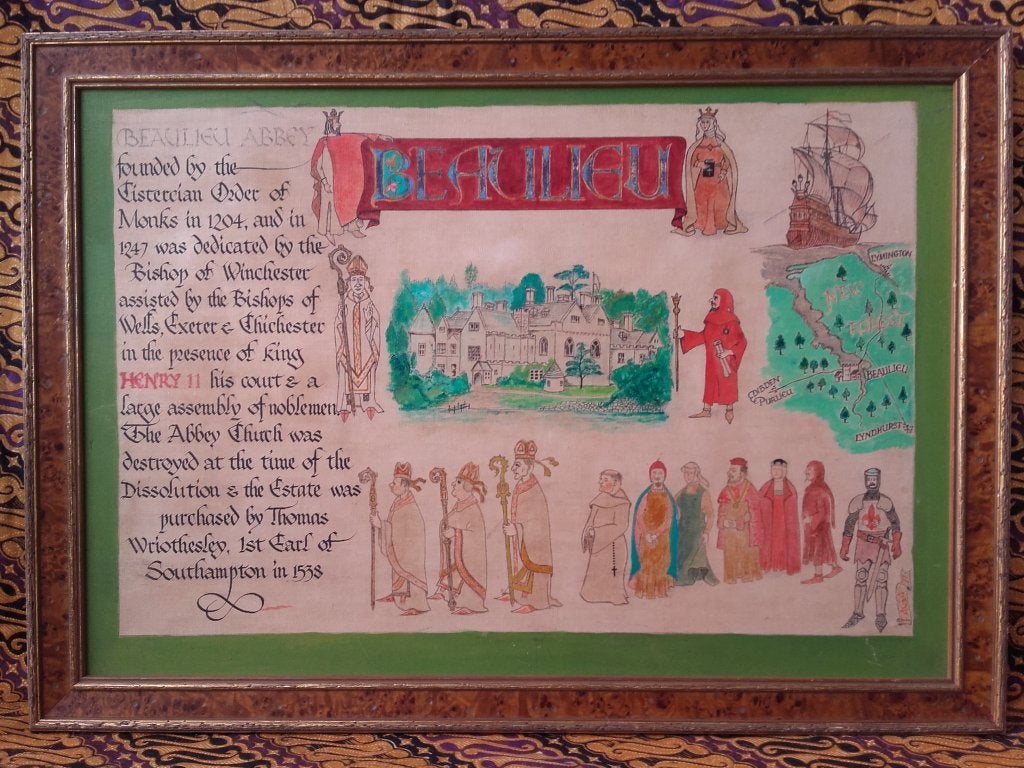 BEAULIEU ABBEY
founded by the
Cistercian Order of
Monks in 1204, and in
1247 was dedicated by the
Bishop of Winchester
assisted by the Bishops of
Wells, Exeter & Chichester
in the presence of King
HENRY II his court & a
large assembly of noblemen.
The Abbey Church was
destroyed at the time of the
Dissolution & the Estate was
purchased by Thomas
Wriothesley, 1st Earl of
Southampton in 1538
BEAULIEU
LYMINGTON
NEW
FOREST
BEAULIEU
DIBDEN
&
PURLIEU
LYNDHURST